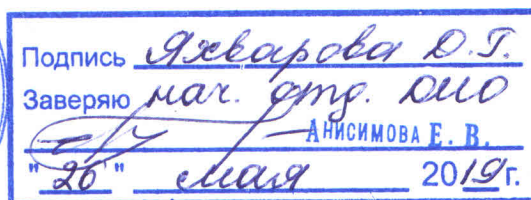 Подпись Яхварова Д.Г.
Заверяю нач. отд. ОИО
Анисимова Е. В.
"20" мая 2019г.